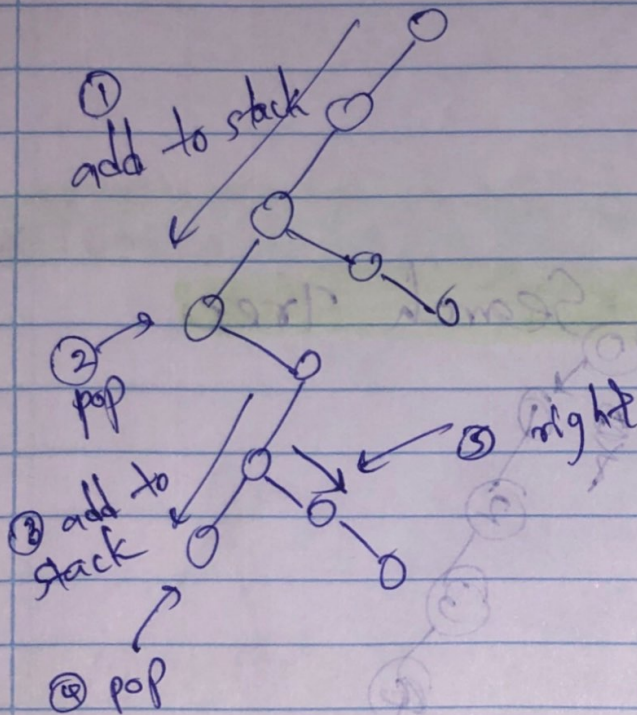 ①
add to stack
②
pop
③ add to
stack
④ pop
⑤ right